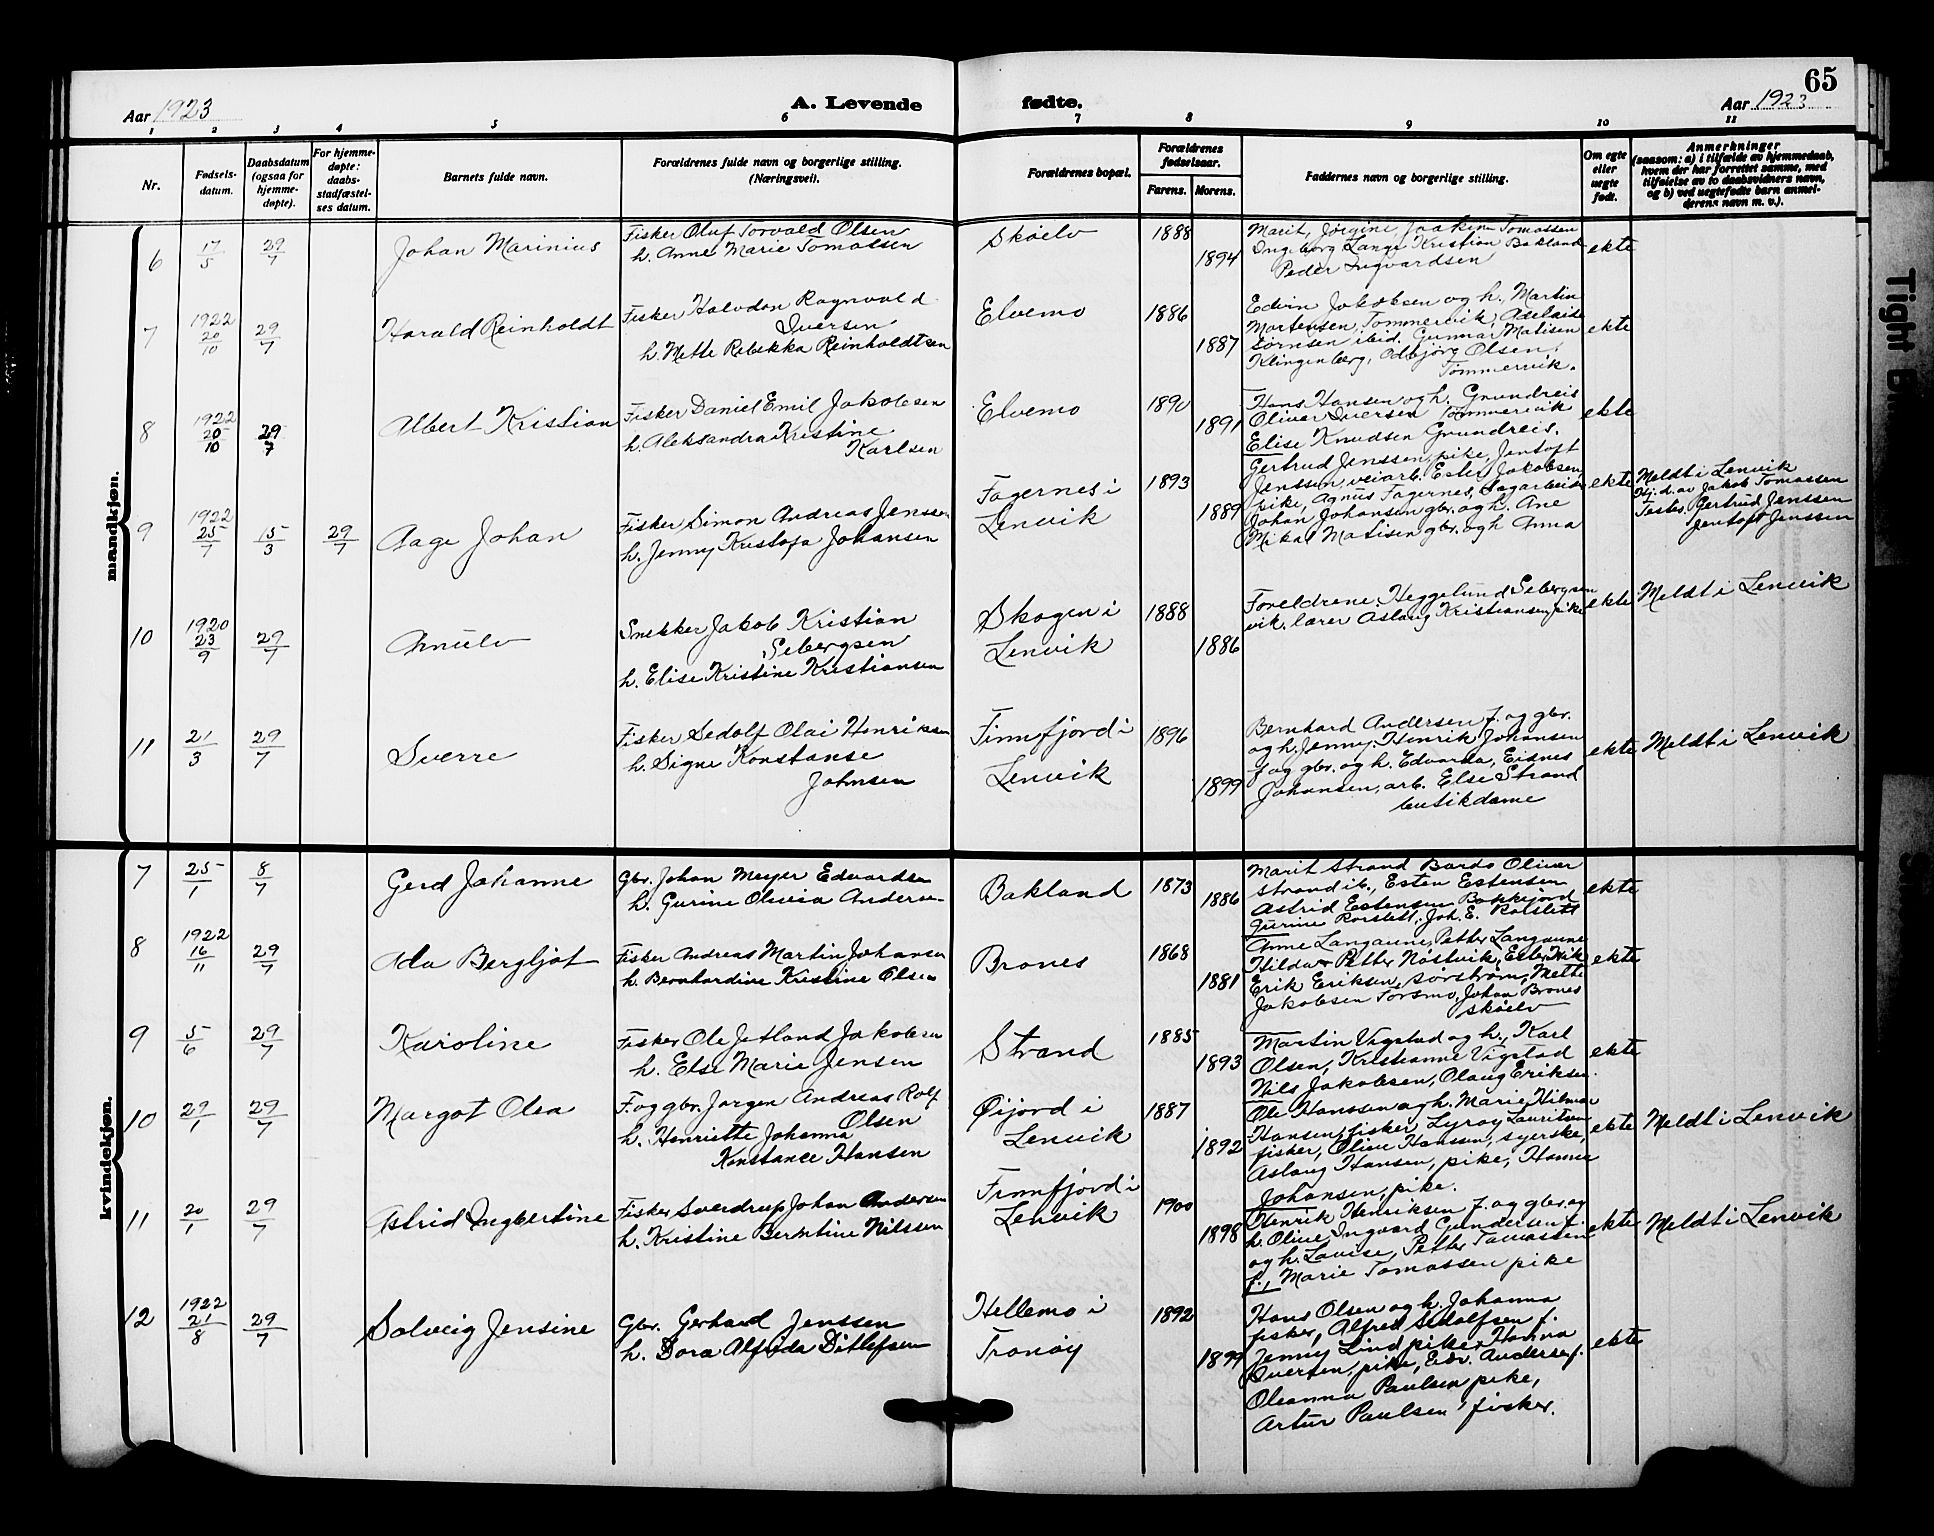 65
Aar 1923
A. Levende fødte.
Aar 1923
1 2 3 4 5 6 7 8 9 10 11
Nr.
Fødsels-
datum.
Daabsdatum
(ogsaa for
hjemme-
døpte).
For hjemme-
døpte:
daabs-
stadfæstel-
ses datum.
Barnets fulde navn.
Forældrenes fulde navn og borgerlige stilling.
(Næringsvei).
Forældrenes bopæl.
Forældrenes
fødselsaar.
Farens. Morens.
Faddernes navn og borgerlige stilling.
Om egte
eller
uegte
født.
Anmerkninger
(saasom: a) i tilfælde av hjemmedaab,
hvem der har forrettet samme, med
tilføielse av to daabsvidners navn,
og b) ved uegtefødte barn anmel-
derens navn m. v.).
mandkjøn.
6
17/5
29/7
Johan Marinius
Fisker Oluf Torvald Olsen
h. Anne Marie Tomassen
Skøelv
1888
1894
Marit, Jørgine, Joakim Tomassen
Ingeborg Lange Kristian Bakland
Peder Ingvardsen
ekte
7
1922
20/10
29/7
Harald Reinholdt
Fisker Halvdan Ragnvald
Iversen
h. Mette Rebekka Reinholdtsen
Elvemo
1886
1887
Edvin Jakobsen og h. Martin
Mortensen, Tømmervik, Adelaide
Sørnsen ibid. Gunnar Matisen
Klingenberg, Odbjørg Olsen,
Tømmervik.
ekte
8
1922
20/10
29/7
Albert Kristian
Fisker Daniel Emil Jakobsen
h. Aleksandra Kristine
Karlsen
Elvemo
1890
1891
Hans Hansen og h. Grundreis
Oliver Iversen Tømmervik
Elise Knudsen Grundreis.
ekte
9
1922
25/7
15/3
29/7
Aage Johan
Fisker Simon Andreas Jenssen
h. Jenny Kristofa Johansen
Fagernes i
Lenvik
1893
1889
Gertrud Jenssen, pike, Jentoft
Jenssen, veiarb. Ester Jakobsen
pike, Agnus Fagernes, Sagarbeider
Johan Johansen gbr. og h. Ane
Mikal Matisen gbr. og h Anna
ekte
Meldt i Lenvik
Hj. d. av Jakob Tomassen
Testes Gertrud Jenssen
Jentoft Jenssen
10
1920
23/9
29/7
Arnulv
Snekker Jakob Kristian
Sebergsen
h. Elise Kristine Kristiansen
Skogen i
Lenvik
1888
1886
Foreldrene, Heggelund Sebergsen
vik. lærer Aslaug Kristiansen, pike
ekte
Meldt i Lenvik
11
21/3
29/7
Sverre
Fisker Sedolf Olai Henriksen
h. Signe Konstanse
Johnsen
Finnfjord i
Lenvik
1896
1899
Bernhard Andersen f. og gbr.
og h. Jenny. Henrik Johansen
f og gbr. og h. Edvarda, Eidnes
Johansen, arb. Else Strand
butikdame
ekte
Meldt i Lenvik
kvindekjøn.
7
25/1
8/7
Gerd Johanne
Gbr. Johan Meyer Edvardsen
h. Gurine Olivia Andersen
Bakland
1873
1886
Marit Strand Bardo Oliver
Strand ib., Esten Estensen
Astrid Estensen Bakkejord
Gurine Rorslett, Joh. E. Rolslett
ekte
8
1922
16/11
29/7
Ada Bergljot
Fisker Andreas Martin Johansen
h. Bernhardine Kristine Olsen
Brones
1868
1881
Anne Langaune, Petter Langaune
Hilda Petter Nøstvik, Ester Vik
Erik Eriksen, Sørstrøm, Mette
Jakobsen Torsmo, Johan Brones
Skøelv
ekte
9
5/6
29/7
Karoline
Fisker Ole Jetland Jakobsen
h. Else Marie Jensen
Strand
1885
1893
Martin Vigstad og h., Karl
Olsen, Kristianne Vigstad
Nils Jakobsen, Olaug Eriksen.
ekte
10
29/1
29/7
Margot Olea
F. og gbr. Jørgen Andreas Rolf
Olsen
h. Henriette Johanna
Konstance Hansen
Øijord i
Lenvik
1887
1892
Ole Hanssen og h. Marie, Hilmar
Hansen, fisker Lyroy Lauritsen
fisker, Olive Hanssen, syerske,
Aslaug Hansen, pike, Hanna
Johansen, pike.
ekte
Meldt i Lenvik
11
20/1
29/7
Astrid Ingbertine
Fisker Sverdrup Johan Andersen
h. Kristine Berntine Nilssen
Finnfjord i
Lenvik
1900
1898
Henrik Henriksen f. og gbr. og
h. Oline Ingvard Gundersen f.
og h. Lovise, Petter Tomassen
f., Marie Tomassen pike
ekte
Meldt i Lenvik
12
1922
21/8
29/7
Solveig Jensine
Gbr. Gerhard Jenssen
h. Dora Alfrida Ditlefsen
Hellemo i
Tranøy
1892
1899
Hans Olsen og h. Johanna
fisker, Alfred Adolfsen f.
Jenny Lind pike, Hanna
Iversen, pike, Edv. Andersen f.
Oleanna Paulsen pike,
Artur Paulsen, fisker.
ekte
Tight